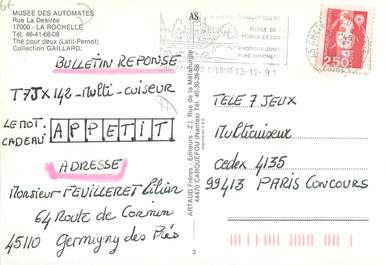 MUSEE DES AUTOMATES
Rue La Desirée
17000 - LA ROCHELLE
Tél. 46-41-68-08
Thé pour deux (Latil-Pernot)
Collection GAILLARD.
BULLETIN REPONSE
T7JX 142 - Multi - cuiseur
LE MOT
CADEAU: APPETIT
ADRESSE
Monsieur FEUILLERET Lilian
64 Route de Cormin
45110 Germigny des Prés
AS
ARTAUD Frères - Editeurs - Z.I. Rue de la Métallurgie
44470 CARQUEFOU (Nantes) Tél. 40-30-26-56
3
MUSEE DE LA
/LOIRE 13-12-91
2,50
TELE 7 JEUX
Multicuiseur
Cedex 4135
99413 PARIS CONCOURS